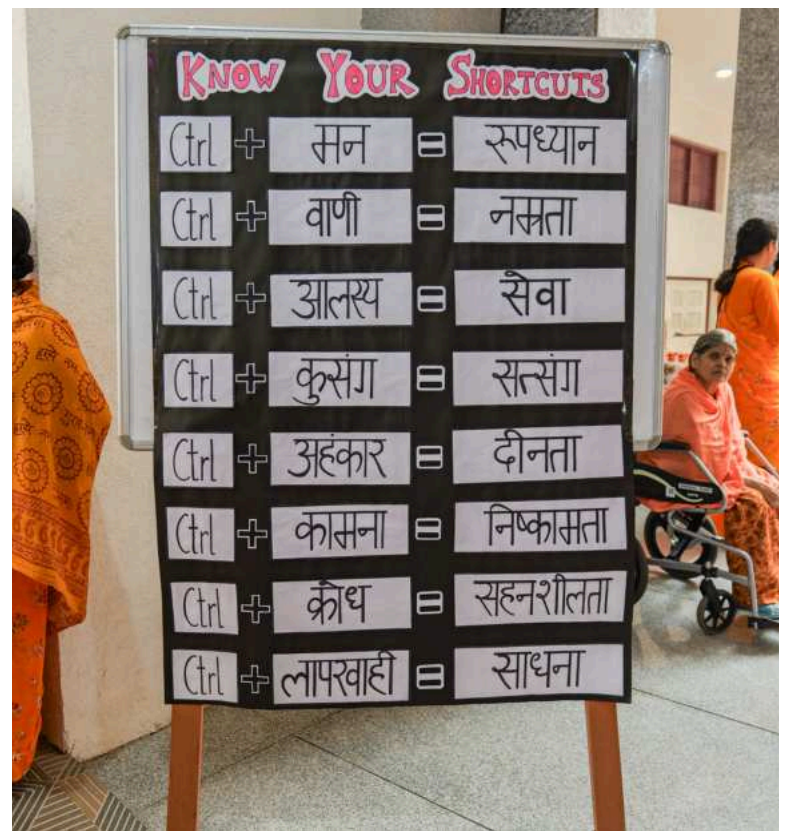 KNOW YOUR SHORTCUTS
Ctrl + मन = रूपध्यान
Ctrl + वाणी = नम्रता
Ctrl + आलस्य = सेवा
Ctrl + कुसंग = सत्संग
Ctrl + अहंकार = दीनता
Ctrl + कामना = निष्कामता
Ctrl + क्रोध = सहनशीलता
Ctrl + लापरवाही = साधना